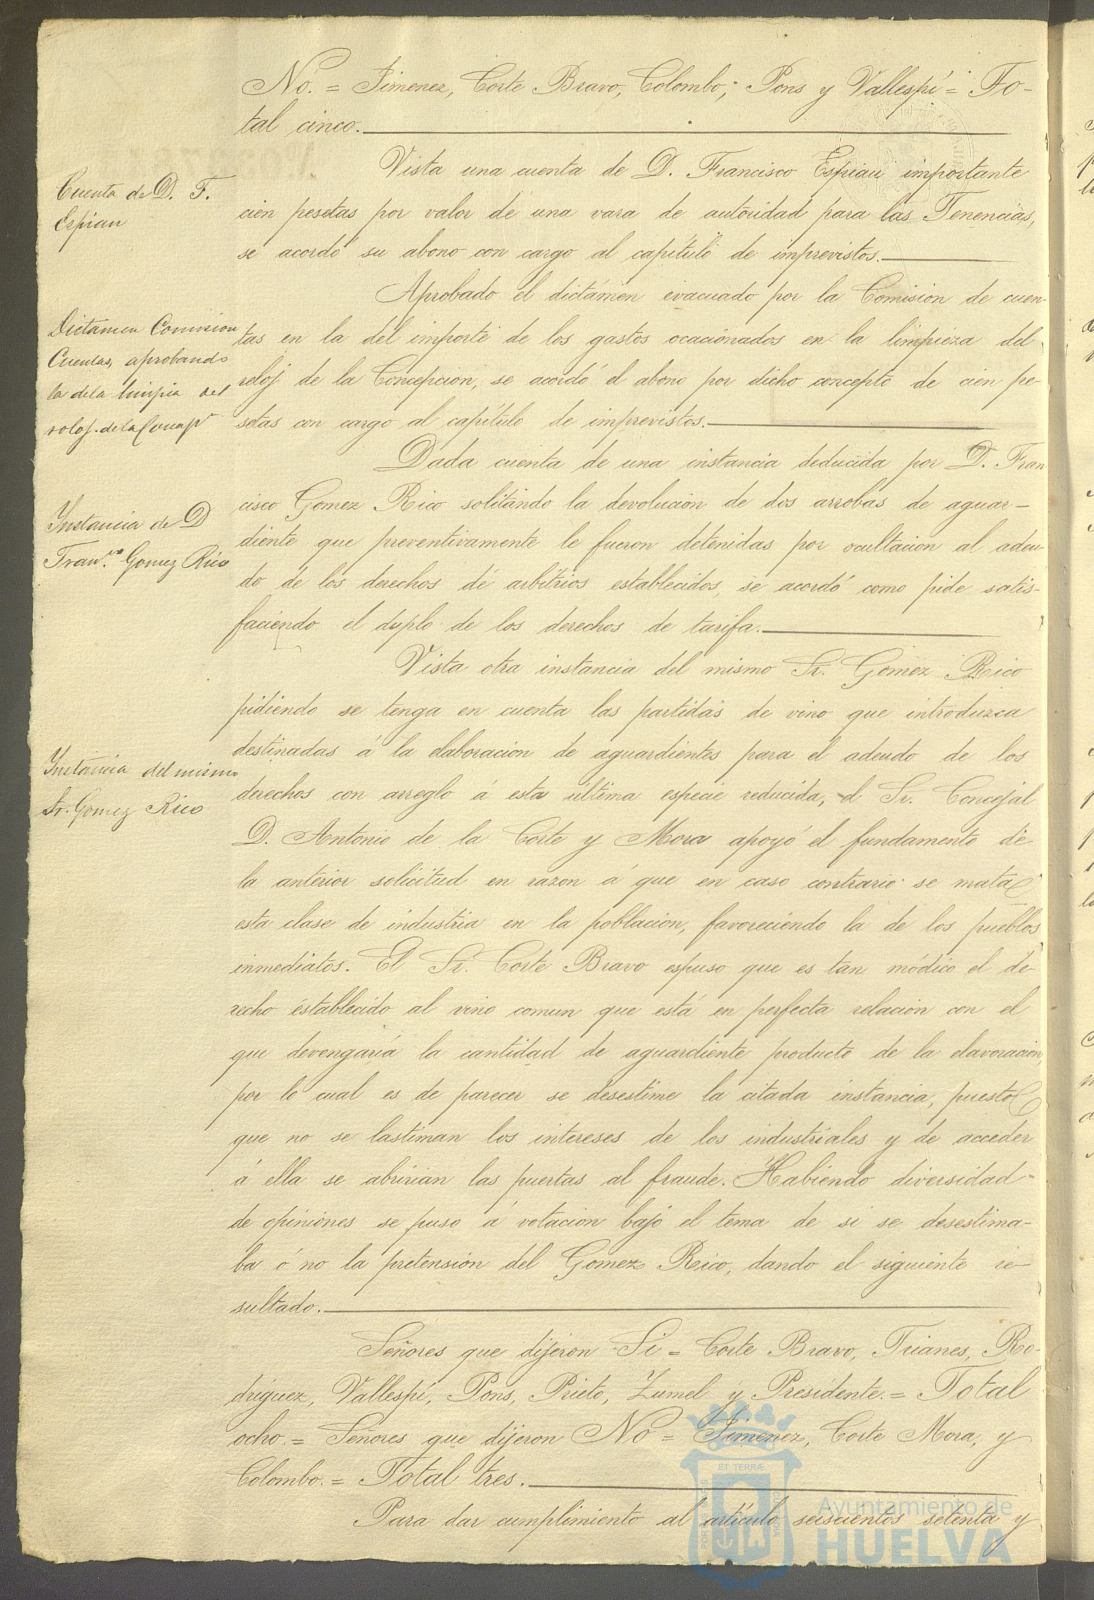 No. = Jimenez, Corte Bravo, Colombo, Pons y Vallespí = To-
tal cinco.
Cuenta de D. F.
Espiau
Vista una cuenta de D. Francisco Espiau importante
cien pesetas por valor de una vara de autoridad para las Tenencias,
se acordó su abono con cargo al capítulo de imprevistos.
Dictamen Comision
Cuentas, aprobando
la de la limpia del
reloj de la Concepn
Aprobado el dictámen evacuado por la Comision de cuen-
tas en la del importe de los gastos ocacionados en la limpieza del
reloj de la Concepcion, se acordó el abono por dicho concepto de cien pe-
setas con cargo al capítulo de imprevistos.
Instancia de D
Franco Gomez Rico
Dada cuenta de una instancia deducida por D. Fran
cisco Gomez Rico solitándo la devolucion de dos arrobas de aguar-
diente que preventivamente le fueron detenidas por ocultacion al adeu-
do de los derechos de arbitrios establecidos, se acordó como pide satis-
faciendo el duplo de los derechos de tarifa.
Instancia del mismo
Sr. Gomez Rico
Vista otra instancia del mismo Sr. Gomez Rico
pidiendo se tenga en cuenta las partidas de vino que introduzca
destinadas á la elaboracion de aguardientes para el adeudo de los
derechos con arreglo á esta ultima especie reducida, el Sr. Concejal
D. Antonio de la Corte y Mora apoyó el fundamento de
la anterior solicitud en razon á que en caso contrario se mata
esta clase de industria en la poblacion, favoreciendo la de los pueblos
inmediatos. El Sr. Corte Bravo espuso que es tan módico el de-
recho establecido al vino comun que está en perfecta relacion con el
que devengaria la cantidad de aguardiente producto de la elavoracion,
por lo cual es de parecer se desestime la citada instancia, puesto
que no se lastiman los intereses de los industriales y de acceder
á ella se abririan las puertas al fraude. Habiendo diversidad
de opiniones se puso á votacion bajo el tema de si se desestima-
ba ó no la pretensión del Gomez Rico, dando el siguiente re-
sultado.
Señores que dijeron Si = Corte Bravo, Trianes, Ro-
driguez, Vallespí, Pons, Prieto, Zumel y Presidente. = Total
ocho. = Señores que dijeron No = Jimenez, Corte Mora, y
Colombo. = Total tres.
Para dar cumplimiento al artículo seiscientos setenta y
Ayuntamiento de
HUELVA